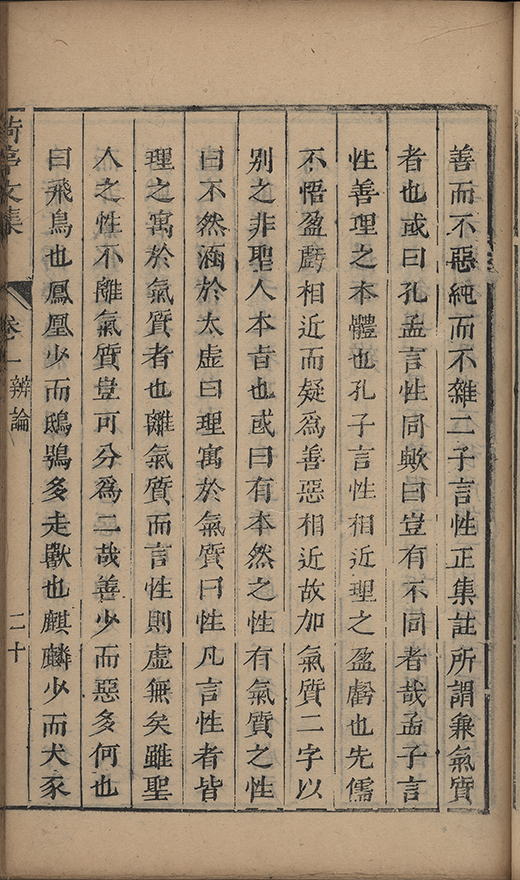 善而不惡純而不雜二子言性正集註所謂兼氣質
者也或曰孔孟言性同歟曰豈有不同者哉孟子言
性善理之本體也孔子言性相近理之盈虧也先儒
不悟盈虧相近而疑爲善惡相近故加氣質二字以
别之非聖人本旨也或曰有本然之性有氣質之性
曰不然涵於太虚曰理寓於氣質曰性凡言性者皆
理之寓於氣質者也離氣質而言性則虚無矣雖聖
人之性不離氣質豈可分爲二哉善少而惡多何也
曰飛鳥也鳳凰少而鴟鴞多走獸也麒麟少而犬豕
亭文集
卷一
辨論
二十